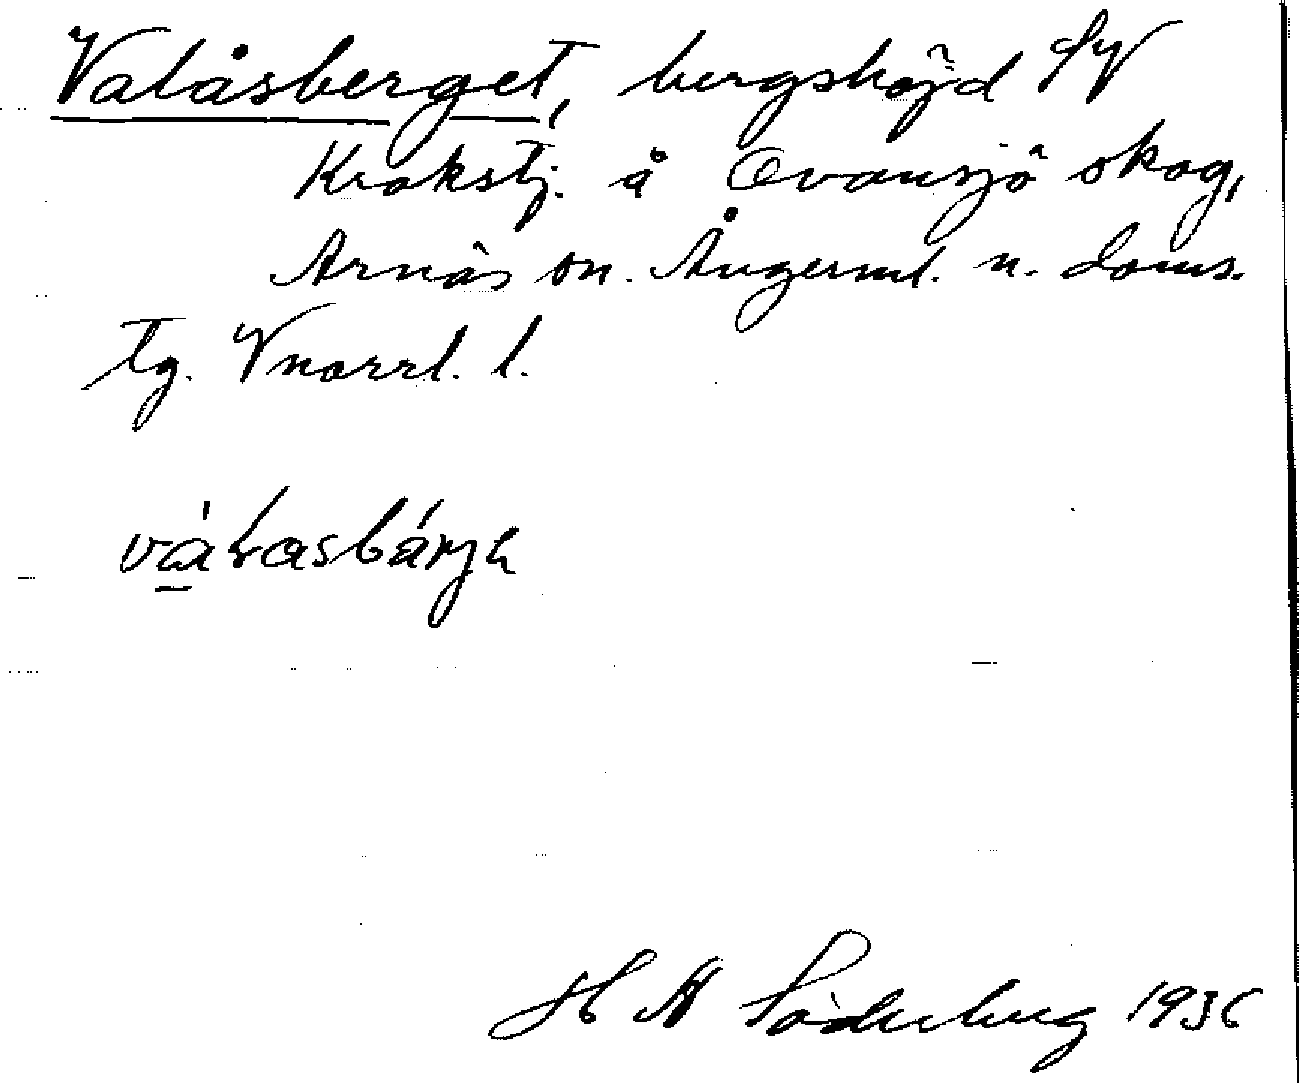 Valåsberget, bergshöjd SV
Krokstj. å Ovansjö skog,
Arnäs sn. Ångerml. n. doms.
tg. Vnorrl. l.
H A Söderberg 1936